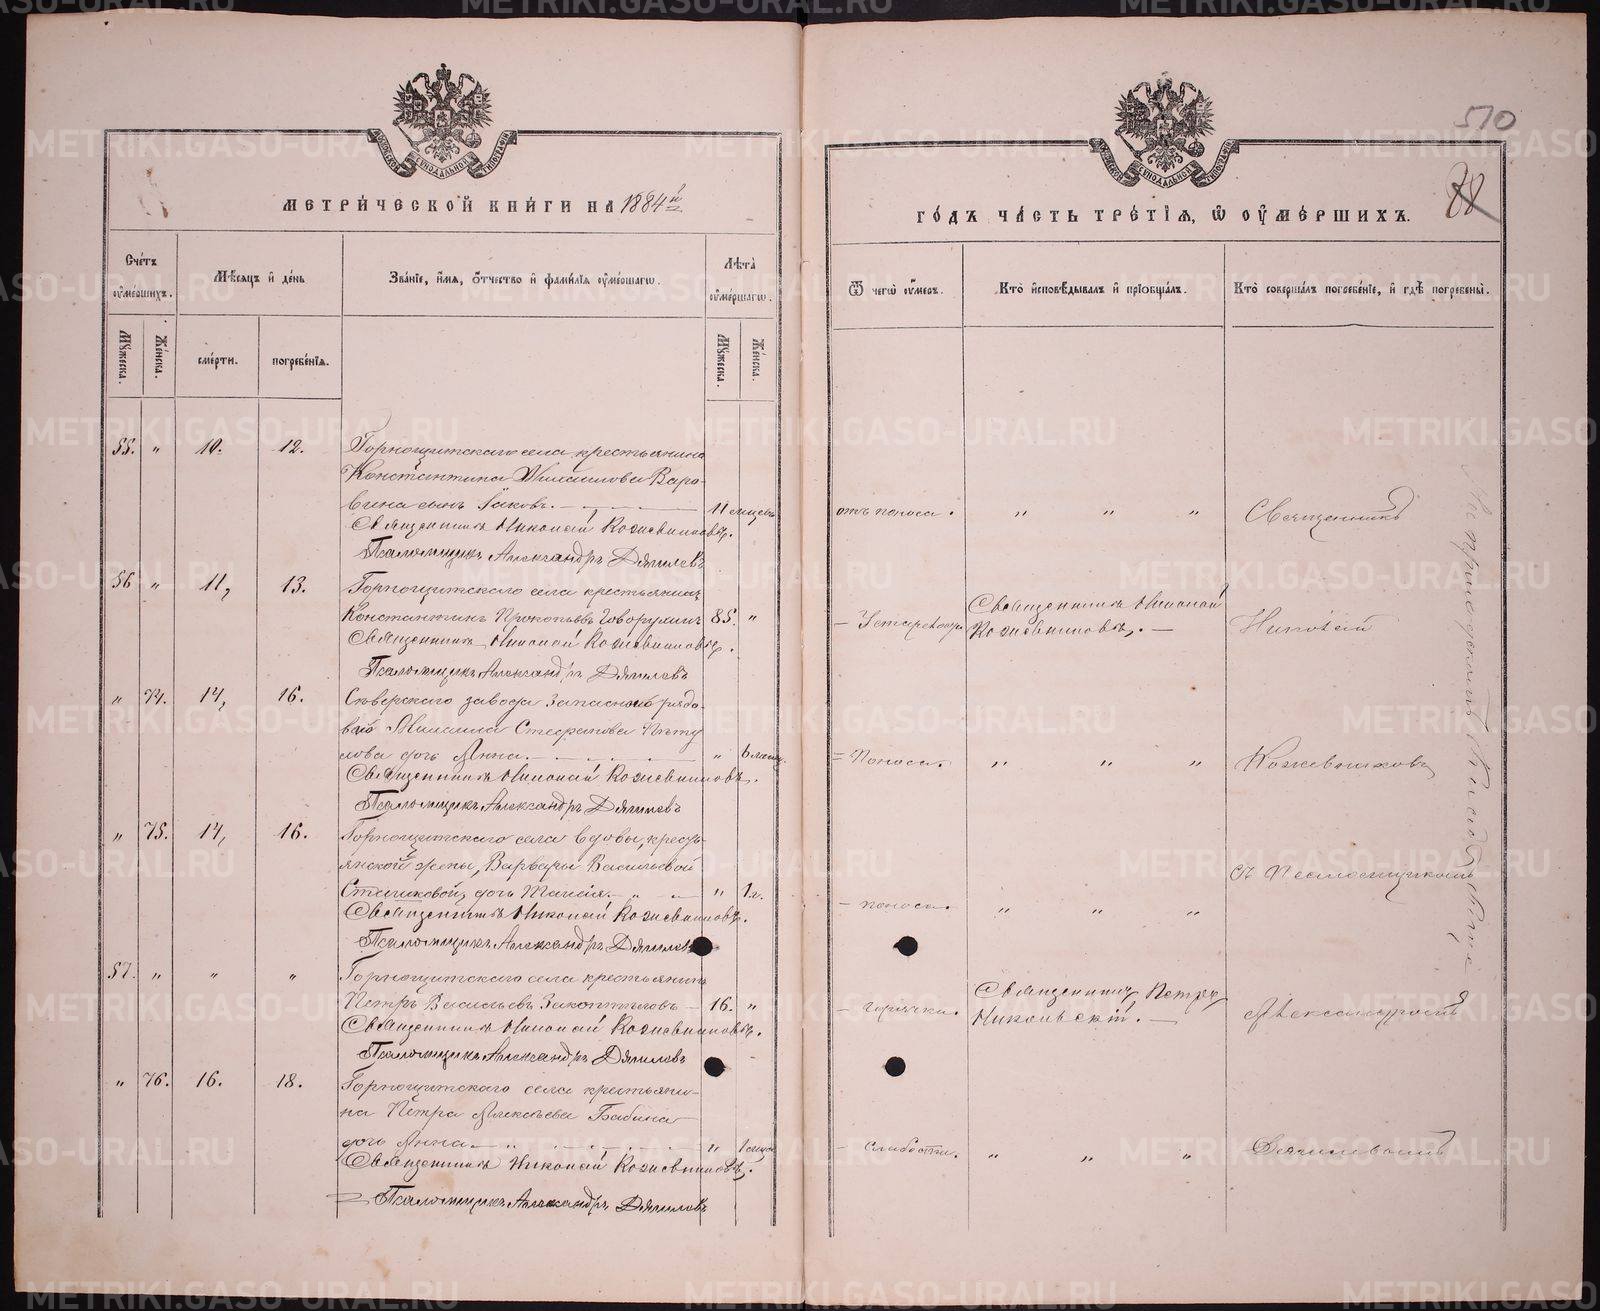 МЕТРИЧЕСКОЙ КНИГИ НА 1884й
Счетъ умершихъ.
Мѣсяцъ и день
Званіе, имя, отчество и фамилія умершаго.
Лѣта умершаго.
Мужеска.
Женска.
смерти.
погребенія.
Мужеска.
Женска.
55. " 10. 12. Горнощитскаго села крестьянина
Константина Михаилова Варо-
вина сынъ Іаковъ. 11 мѣсцевъ
Священникъ Николай Кожевниковъ.
Псаломщикъ Александръ Дягилевъ
56 " 11, 13. Горнощитскаго села крестьянинъ
Константинъ Прокопьевъ Говорухинъ 85. "
Священникъ Николай Кожевниковъ.
Псаломщикъ Александръ Дягилевъ
" 74. 14, 16. Сѣверскаго завода запаснаго рядо-
ваго Михаила Стефанова
дочь Анна. " 6 мѣсяц.
Священникъ Николай Кожевниковъ.
Псаломщикъ Александръ Дягилевъ
" 75. 14, 16. Горнощитскаго села вдовы, кресть-
янской жены, Варвары Васильевой
дочь Таисія. " 1 г.
Священникъ Николай Кожевниковъ.
Псаломщикъ Александръ Дягилевъ
57. " " " Горнощитскаго села крестьянинъ
Петръ Васильевъ Закоптеловъ 16. "
Священникъ Николай Кожевниковъ.
Псаломщикъ Александръ Дягилевъ
" 76. 16. 18. Горнощитскаго села крестьяни-
на Петра Алексѣева Бабина
дочь Анна "
Священникъ Николай Кожевниковъ.
Псаломщикъ Александръ Дягилевъ
510
88
ГОДЪ ЧАСТЬ ТРЕТІЯ, Ѿ УМЕРШИХЪ.
Ѿ чего умеръ.
Кто исповѣдывалъ и пріобщалъ.
Кто совершалъ погребеніе, и гдѣ погребены.
отъ поноса. " " " Священникъ
Священникъ Николай
Кожевниковъ. Николай
Поноса. " " " Кожевниковъ
съ Псаломщикомъ
поноса. " " "
горячки. Священникъ Петръ
Никольскій. Александромъ
слабости. " " " Дягилевымъ
На приходскомъ кладбищѣ
METRIKI.GASO-URAL.RU